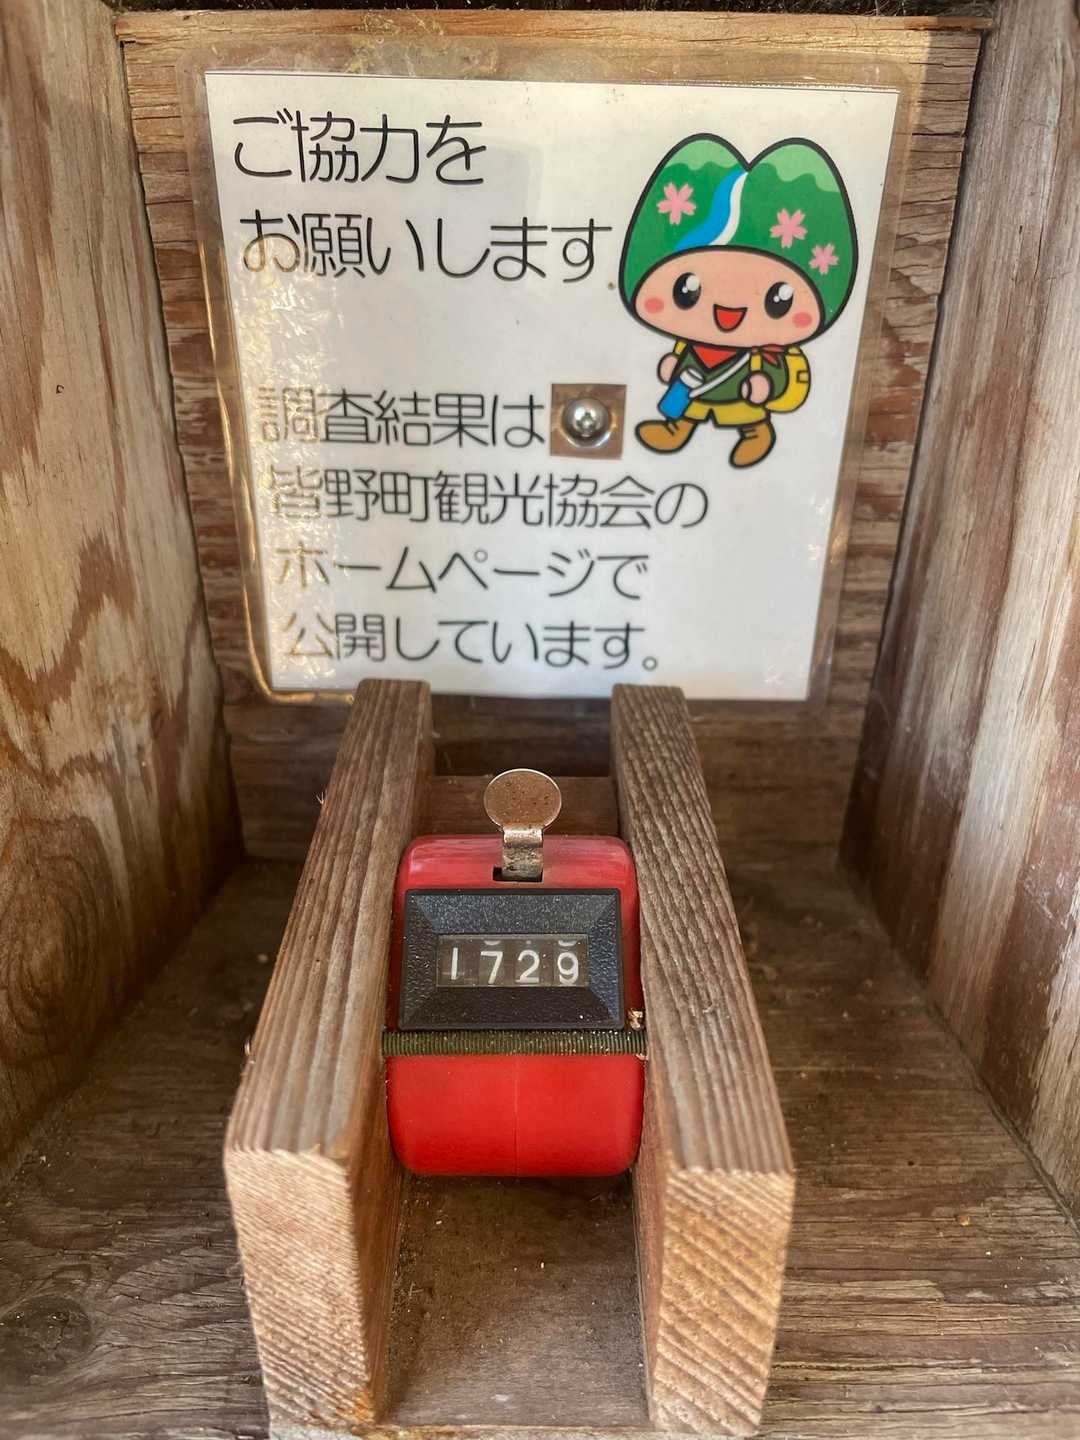 ご協力を
お願いします
調査結果は
皆野町観光協会の
ホームページで
公開しています。
1729